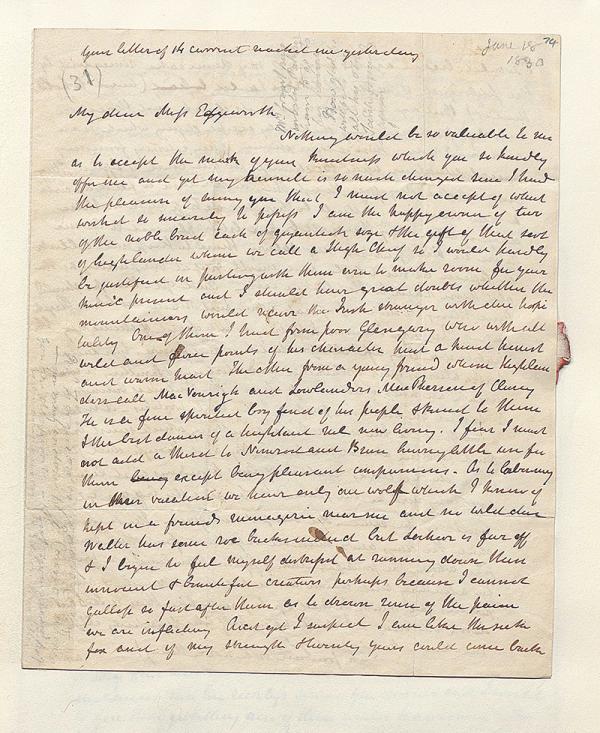 Your letter of 14 current reached me yesterday
June 18 74
1830
(31)
My dear Miss Edgeworth
Nothing would be so valuable to me
as to accept the mark of your kindness which you so kindly
offer me and yet my kennell is so much changed since I had
the pleasure of seeing you that I must not accept of what
wished so sincerely to possess I am the happy owner of two
of the noble breed each of gigantick size & the gift of that sort
of highlander whom we call a High Chief so I would hardly
be justified in parting with them even to make room for your
kind present and I should have great doubts whether the
mountaineers would receive the Irish stranger with due hospi
tality One of them I had from poor Glengarry who with all
wild and fierce points of his character had a kind honest
and warm heart. The other from a young friend whom Highlan
ders call MacVourigh and Lowlanders MacPherson of Cluny
He is a fine spirited boy fond of his people & kind to them
& the best dancer of a highland reel now living. I fear I must
not add a third to Nimrod and Bran having little use for
them being except being pleasant companions. As to labouring
in their vocation we have only one wolf which I know of
kept in a friends menagerie near me and no wild deer
Walter has some roe bucks indeed but Lochore is far off
& I begin to feel myself distressed at running down these
innocent & beautiful creatures perhaps because I cannot
gallop so fast after them as to drown sense of the pain
we are inflicting And yet I suspect I am like the sick
fox and if my strength & twenty years could come back